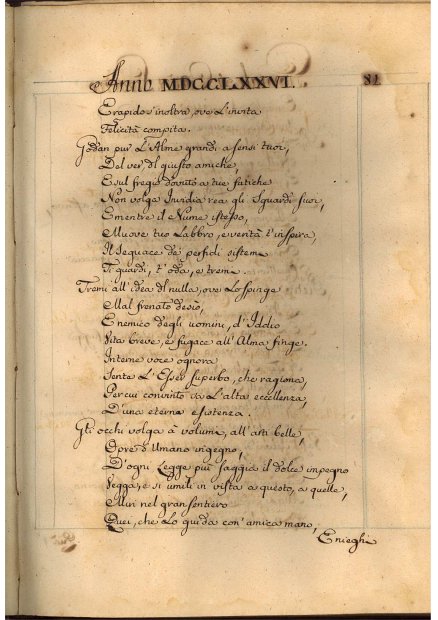 Anno MDCCLXXVI. 81
E rapido s'inoltra, ove L'invita
Felicità compita.
Godan pur L'Alme grandi a sensi tuoi,
Del ver, del giusto amiche,
E sul fregio dovuto a tue fatiche
Non volga Invidia rea gli Sguardi suoi,
E mentre il Nume istesso,
Muove tuo Labbro, e verità t'inspira,
Il Seguace de' perfidi sistemi
Ti guardi, t'oda, e treme.
Tremi all'idea del nulla, ove Lo spinge
Mal frenato desio,
E nemico degli uomini, d'Iddio
Vita breve, e fugace all'Alma finge.
Interne voce ognora
Senta L'Esser superbo, che ragiona,
Per cui convinto va L'alta eccellenza,
D'una eterna esistenza.
Gli occhi volga à volumi, all'arti belle,
Opre d'Umano ingegno,
D'ogni Legge più saggia il dolce impegno
Vegga, e si umili in vista a questo, a quelle,
Miri nel gran sentiero
Quei, che Lo guida con'amica mano,
E nieghi